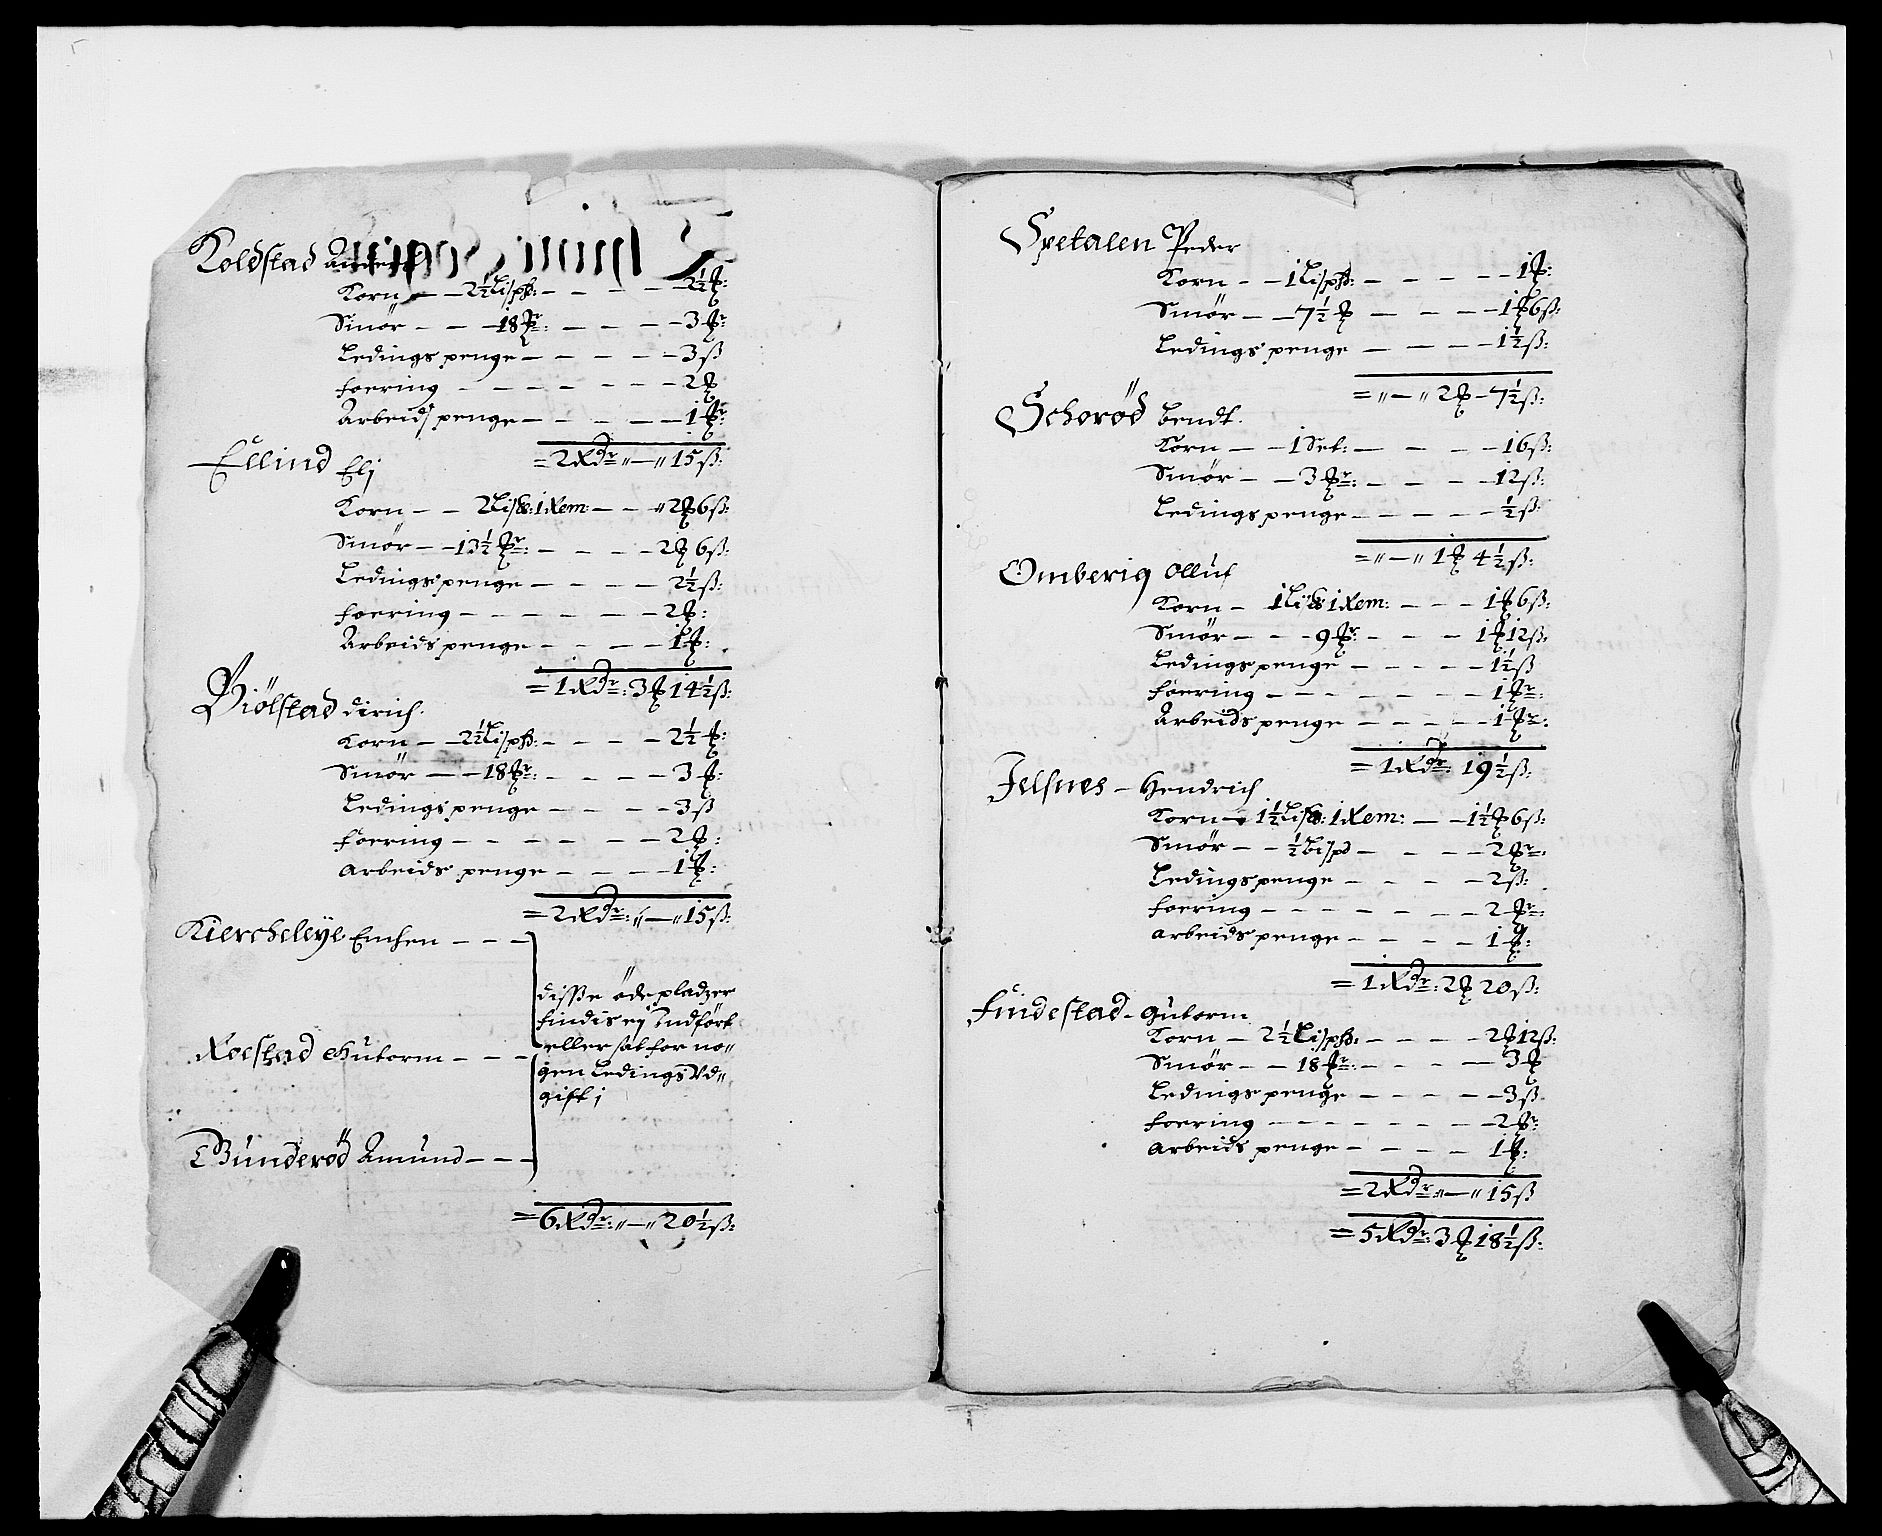 Koldstad Anders
Korn – – 2½ Lispd: – – – – 2½ ₰:
Smör – – – 18 ₰r: – – – – 3 ₰r
Ledings penge – – – – – 3 ß
foering – – – – – – – 2 ₰
Arbeids penge – – – – – 1 ₰r
= 2 Rdr „ – „ 15 ß:
Ellind Elj
Korn – – 2 Lisp: 1 Rem: – – „ 2 ₰ 6 ß:
Smör – – 13½ ₰r: – – – – 2 ₰ 6 ß:
Ledings penge – – – – 2½ ß:
foering – – – – – – – 2 ₰:
Arbeids penge – – – – – 1 ₰:
= 1 Rdr: 3 ₰ 14½ ß:
Biölstad dirich.
Korn – – 2½ Lispd: – – – – 2½ ₰:
Smör – – 18 ₰r: – – – – 3 ₰:
Ledings penge – – – – – 3 ß
foering – – – – – – 2 ₰:
arbeids penge – – – – 1 ₰:
= 2 Rdr: „ – „ 15 ß:
Kiercheleye Emhen – – –
disse öde pladzer
findis ej Indfört
Roestad Gutorm – – –
eller sat for no„
gen Ledings Vd„
gift j
Bunderöd Amund – – –
= 6 Rdr: „ – „ 20½ ß:
Spetalen Peder
Korn – – 1 Lispd: – – – – – 1 ₰:
Smör – – 7½ ₰ – – – – 1 ₰ 6 ß:
Ledings penge – – – – 1½ ß:
= „ – „ 2 ₰ – 7½ ß:
Schoröd bendt.
Korn – – 1 Set: – – – – 16 ß:
Smör – – 3 ₰r: – – – – 12 ß:
Ledings penge – – – – – ½ ß:
= „ – „ 1 ₰ 4½ ß:
Omberig olluf
Korn – 1 Lisp: 1 Rem: – – – 1 ₰ 6 ß:
Smör – – – 9 ₰r: – – – 1 ₰ 12 ß:
Ledings penge – – – – – 1½ ß
foering – – – – – – – 1 ₰r:
Arbeids penge – – – – – 1 ₰r:
= 1 Rdr: 19½ ß:
Jelsnes – Hendrich
Korn – 1½ Lisp: 1 Rem: – – 1½ ₰ 6 ß:
Smör – – ½ Lispd – – – – 2 ₰r:
Ledings penge – – – – 2 ß:
foering – – – – – – – 2 ₰r:
arbeids penge – – – – 1 ₰:
= 1 Rdr: 2 ₰ 20 ß:
findestad – gutorm
Korn – 2½ Lispd: – – – – 2 ₰ 12 ß:
Smör – – 18 ₰r: – – – – 3 ₰
Ledings penge – – – – – 3 ß
foering – – – – – – – 2 ₰r:
arbeids penge – – – – 1 ₰:
= 2 Rdr „ – „ 15 ß
= 5 Rdr: 3 ₰ 18½ ß: